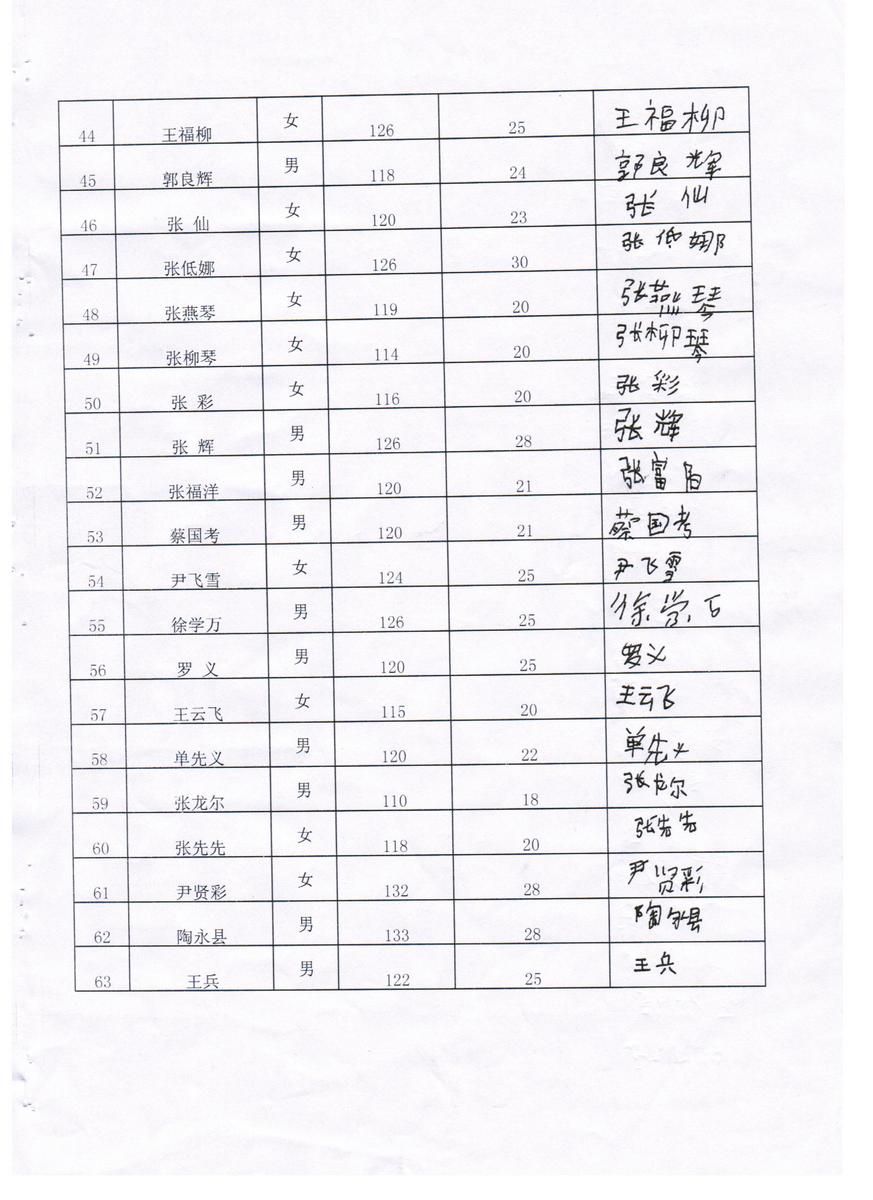 44 王福柳 女 126 25 王福柳
45 郭良辉 男 118 24 郭良辉
46 张 仙 女 120 23 张 仙
47 张低娜 女 126 30 张低娜
48 张燕琴 女 119 20 张燕琴
49 张柳琴 女 114 20 张柳琴
50 张 彩 女 116 20 张彩
51 张 辉 男 126 28 张辉
52 张福洋 男 120 21 张富
53 蔡国考 男 120 21 蔡国考
54 尹飞雪 女 124 25 尹飞雪
55 徐学万 男 126 25 徐学
56 罗 义 男 120 25 罗义
57 王云飞 女 115 20 王云飞
58 单先义 男 120 22 单先义
59 张龙尔 男 110 18 张龙尔
60 张先先 女 118 20 张先先
61 尹贤彩 女 132 28 尹贤彩
62 陶永县 男 133 28 陶永县
63 王兵 男 122 25 王兵